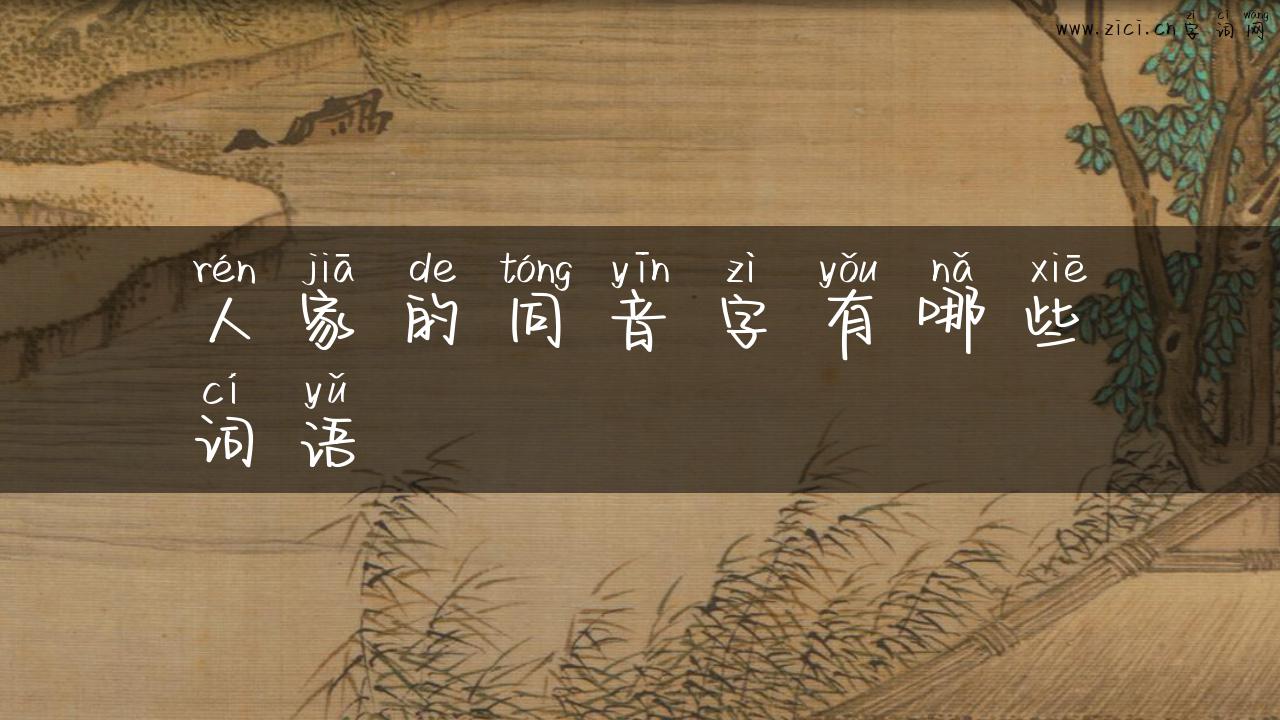 zì cí wǎng
www.zici.cn字词网
rén jiā de tóng yīn zì yǒu nǎ xiē
人家的同音字有哪些
cí yǔ
词语